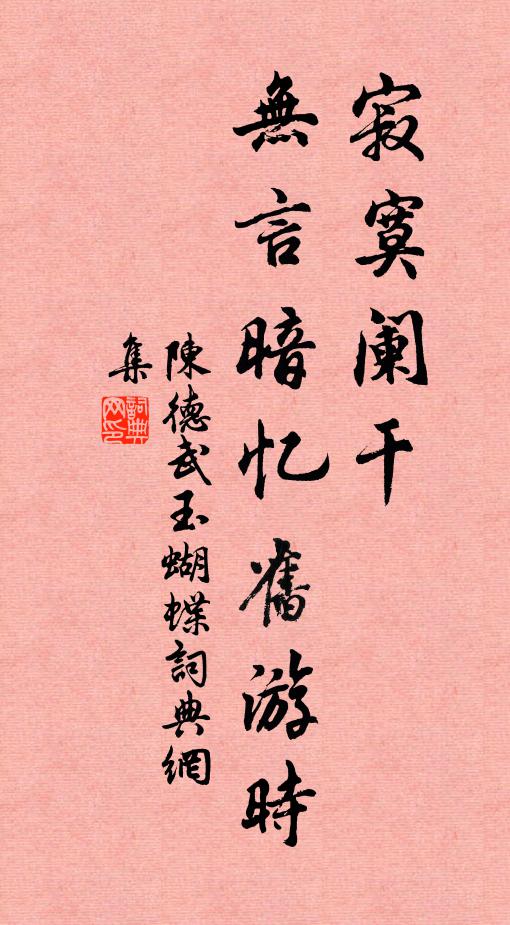 寂寞阑干
無言暗忆舊游時
陳德武玉蝴蝶詞典網
集
詞典网印